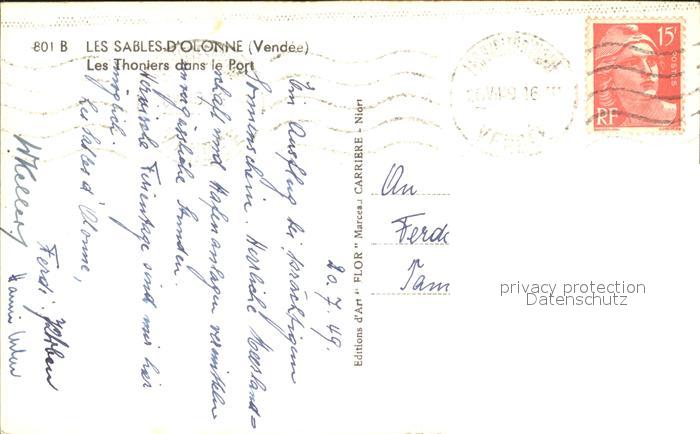 801 B LES SABLES-D'OLONNE (Vendée)
Les Thoniers dans le Port
15F
POSTES
RF
Editions d'Art "FLOR" Marceau CARRIÈRE - Niort
20.7.49.
Ein Ausflug bei prächtigem
Sonnenschein. Herrliche Meerland=
schaft und Hafenanlagen vermitteln
unvergessliche Stunden.
Herrische Ferientage sind mir hier
möglich.
Les Sables d'Olonne,
W Keller
Ferdi
An
Ferd
Fam
privacy protection
Datenschutz